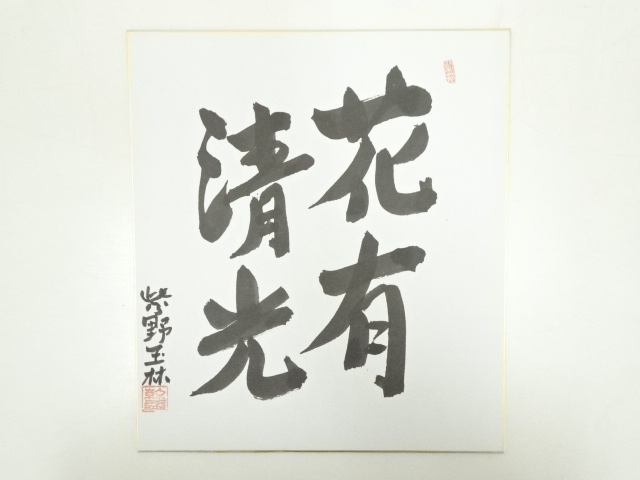 花有
清光
紫野玉林